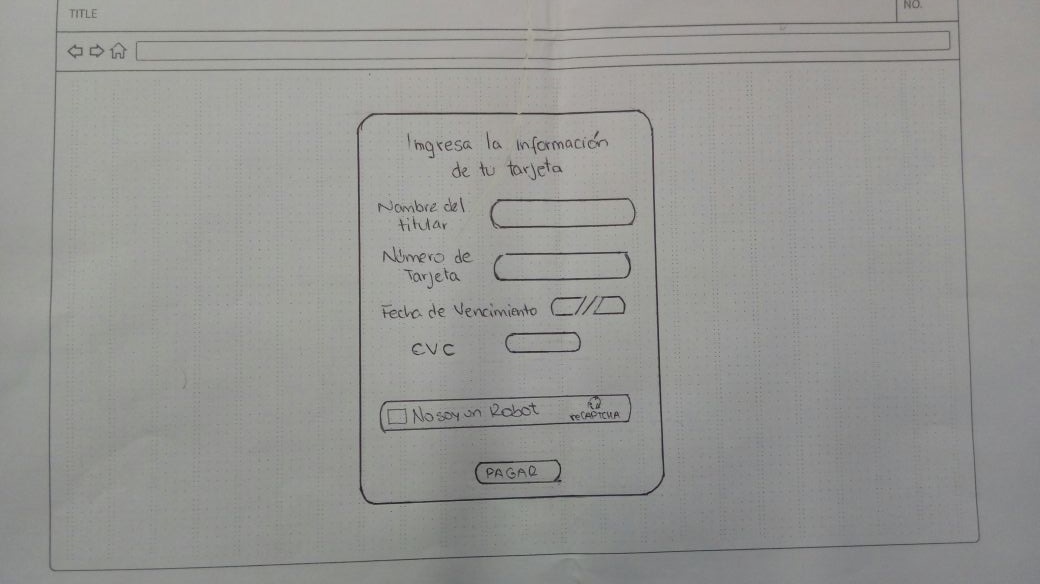 TITLE
NO.
Ingresa la información
de tu tarjeta
Nombre del
titular
Número de
Tarjeta
Fecha de Vencimiento //
CVC
No soy un Robot
reCAPTCHA
PAGAR